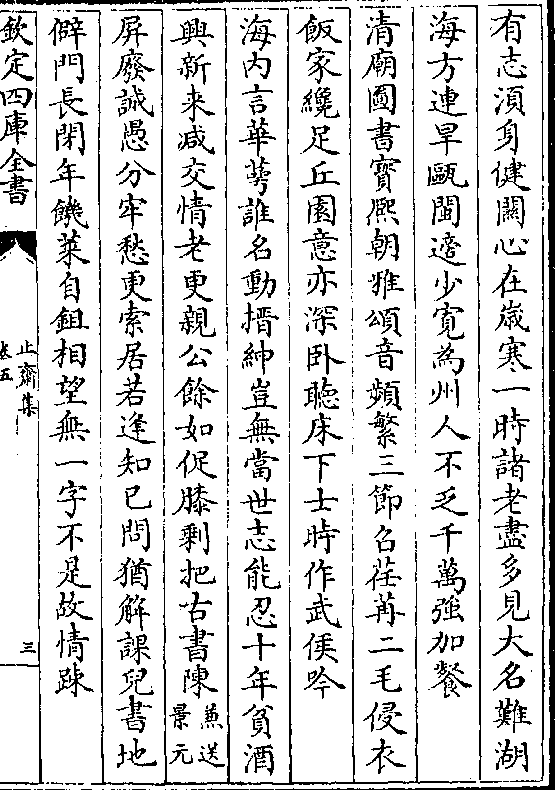 有志湏身健闗心在歳寒一時諸老盡多見大名難湖
海方連旱甌閩邊少寛為州人不乏千萬強加餐
清廟圖書寳熈朝雅頌音頻繁三節召荏苒二毛侵衣
飯家纔足丘園意亦深卧聴床下士時作武侯吟
海内言華萼誰名動搢紳豈無當世志能忍十年貧酒
興新来减交情老更親公餘如促膝剰把古書陳蕪送景元
屏廢誠愚分牢愁更索居若逢知已問猶解課兒書地
僻門長閉年饑菜自鉏相望無一字不是故情踈
欽定四庫全書
止齋集
卷五
三